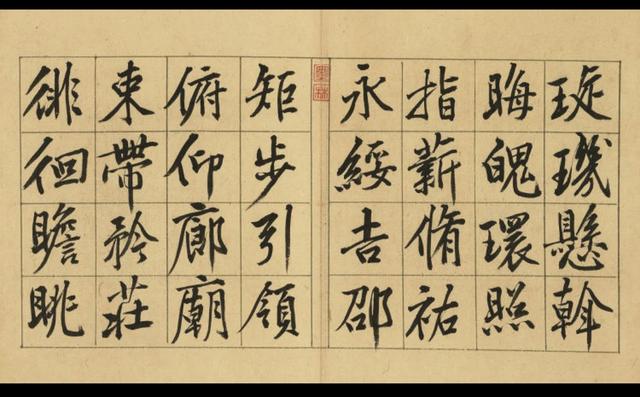 琁璣懸斡
晦魄環照
指薪脩祐
永綏吉邵
矩步引領
俯仰廊廟
束帶矜莊
徘徊瞻眺